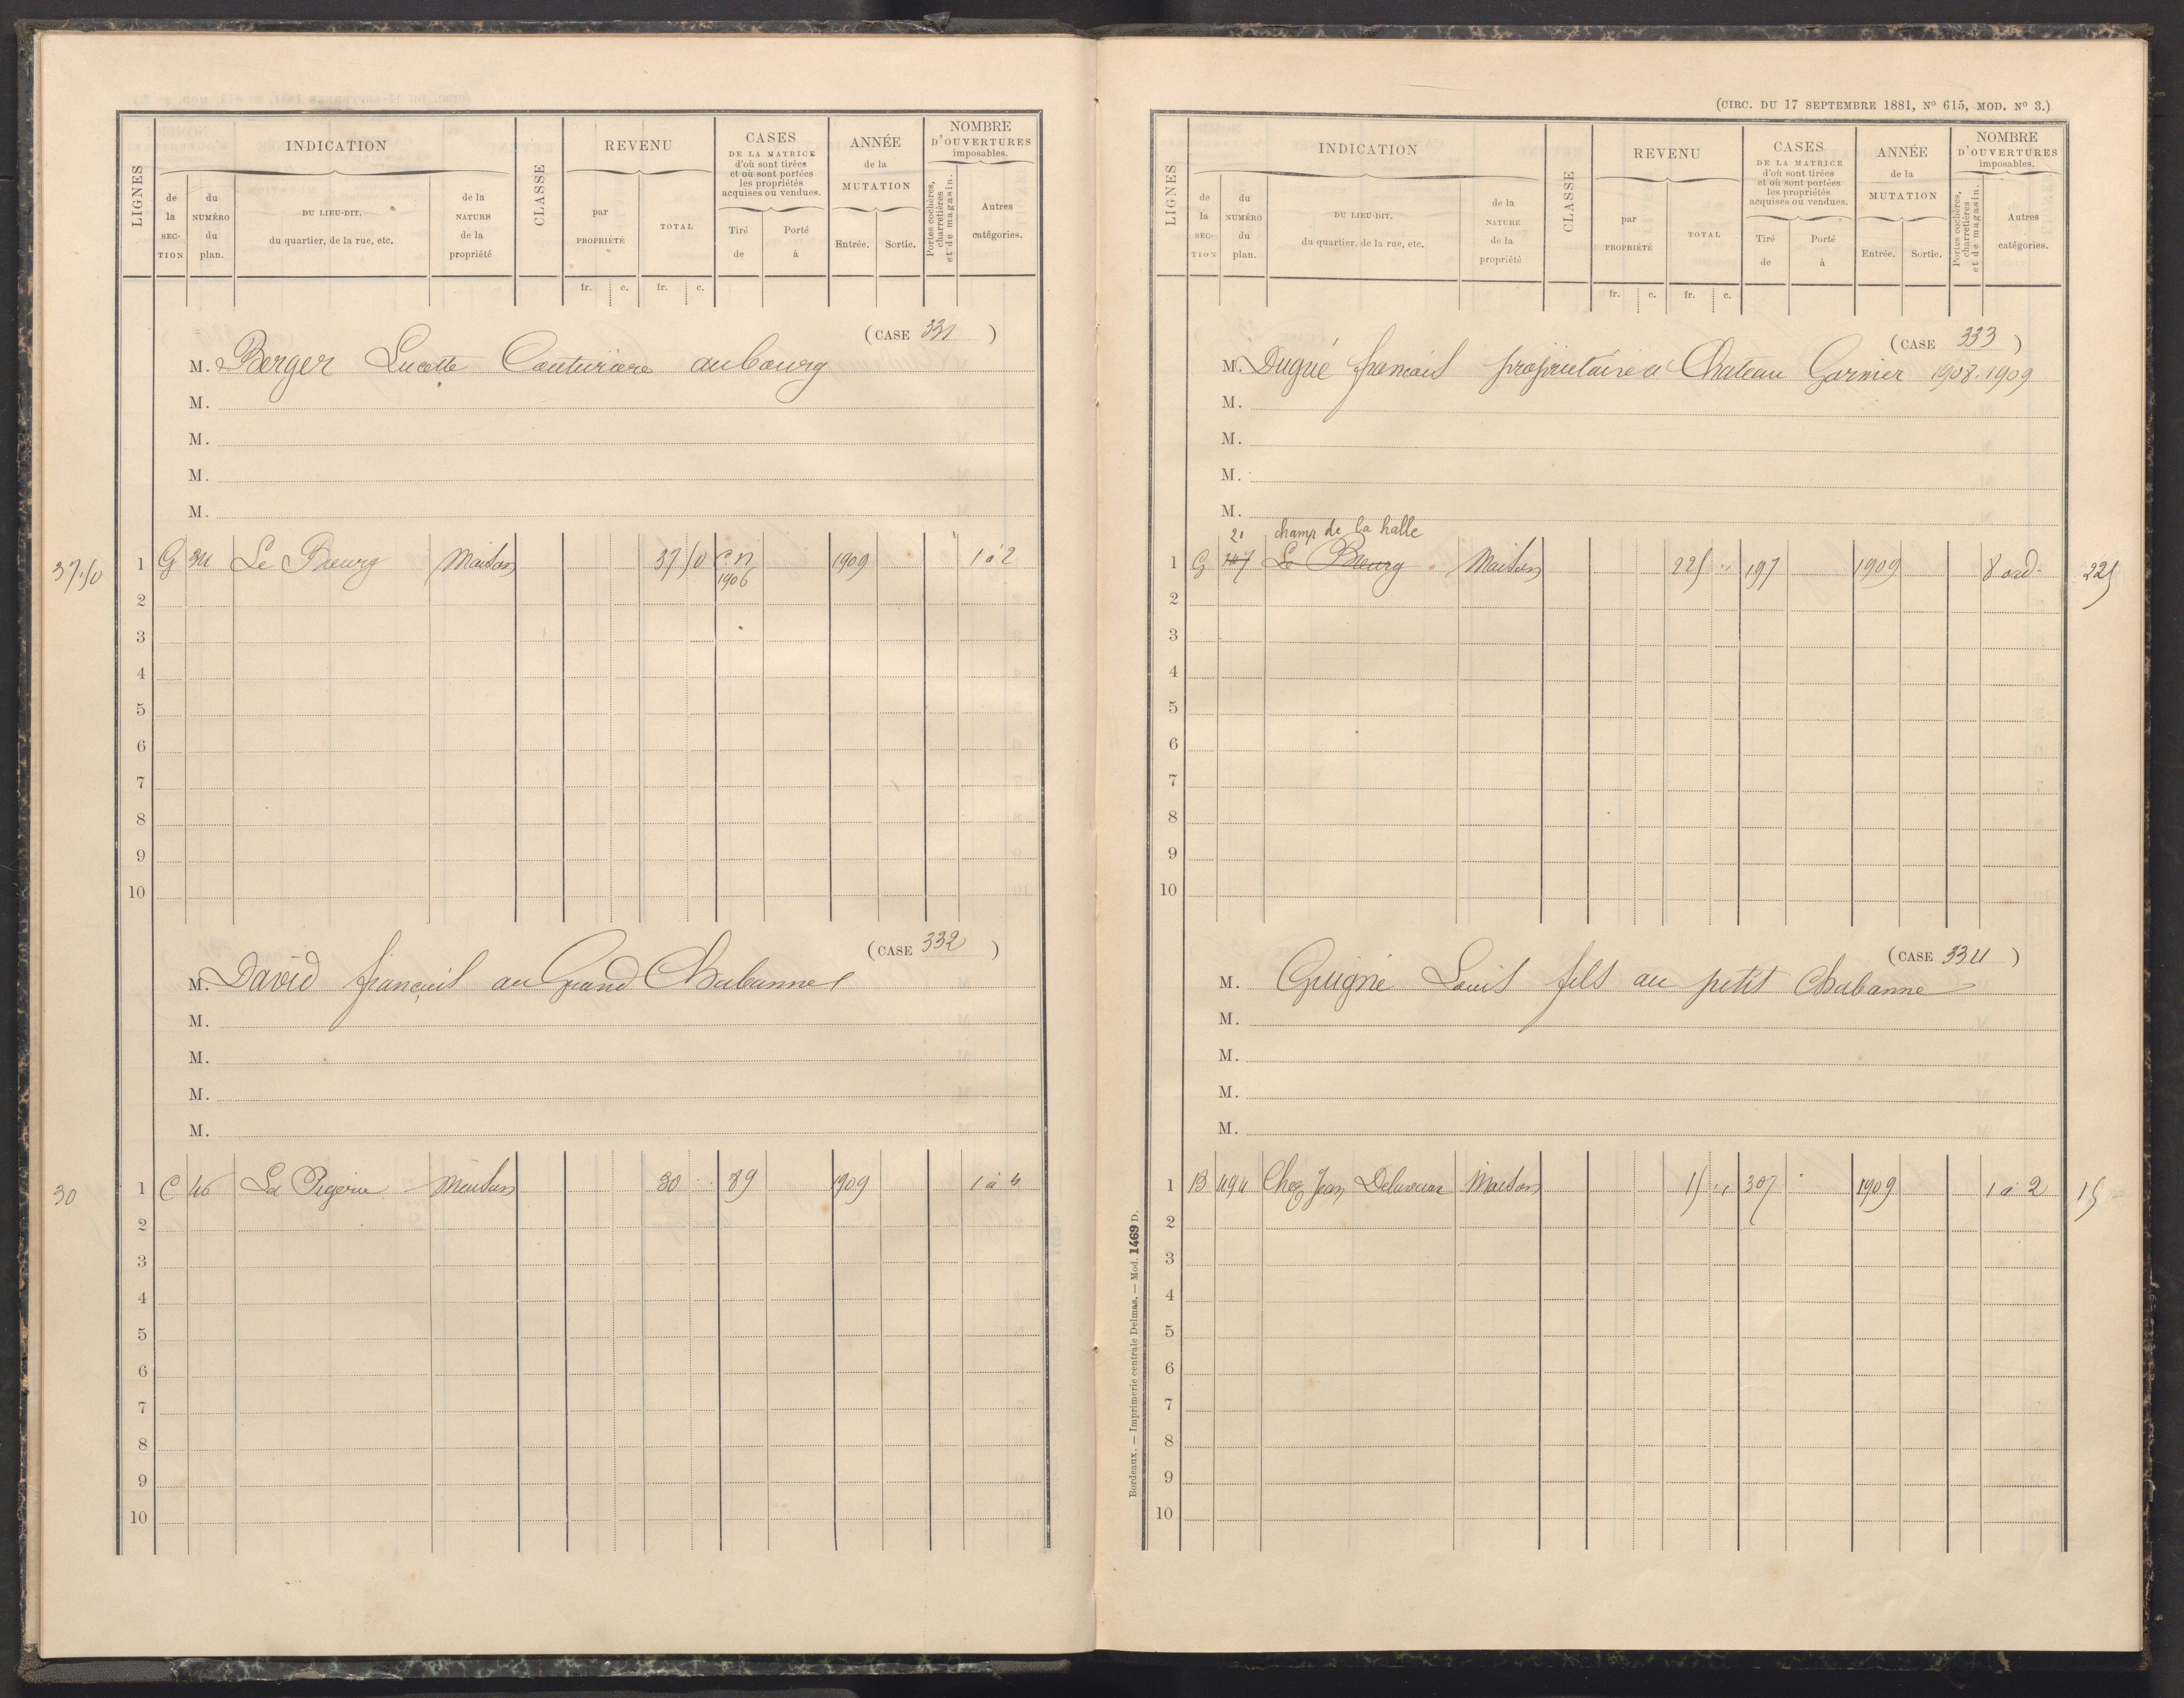 LIGNES
INDICATION
de la SECTION
du NUMÉRO du plan.
DU LIEU-DIT, du quartier, de la rue, etc.
de la NATURE de la propriété
CLASSE
REVENU
par PROPRIÉTÉ
TOTAL
CASES DE LA MATRICE d'où sont tirées et où sont portées les propriétés acquises ou vendues.
Tiré de
Porté à
ANNÉE de la MUTATION
Entrée.
Sortie.
NOMBRE D'OUVERTURES imposables.
Portes cochères, charretières et de magasin.
Autres catégories.
fr. c. fr. c.
(CASE 331)
M. Berger Lucette Couturiere au bourg
M.
M.
M.
M.
37,50 1 G 34 Le Bourg Maison 37 50 C.N 1906 1909 1 à 2
2
3
4
5
6
7
8
9
10
(CASE 332)
M. David françois au Grand Chabannes
M.
M.
M.
M.
30 1 C 46 La Maison 30 89 1909 1 à 6
2
3
4
5
6
7
8
9
10
(CIRC. DU 17 SEPTEMBRE 1881, Nº 615, MOD. Nº 3.)
LIGNES
INDICATION
de la SECTION
du NUMÉRO du plan.
DU LIEU-DIT, du quartier, de la rue, etc.
de la NATURE de la propriété
CLASSE
REVENU
par PROPRIÉTÉ
TOTAL
CASES DE LA MATRICE d'où sont tirées et où sont portées les propriétés acquises ou vendues.
Tiré de
Porté à
ANNÉE de la MUTATION
Entrée.
Sortie.
NOMBRE D'OUVERTURES imposables.
Portes cochères, charretières et de magasin.
Autres catégories.
fr. c. fr. c.
(CASE 333)
M. Dugué francois propriétaire a Chateau Garnier 1908.1909
M.
M.
M.
M.
21 champ de la halle
1 G Le Bourg Maison 225 " 197 1909 8 ord. 225
2
3
4
5
6
7
8
9
10
(CASE 334)
M. Guigné Louis fils au petit Chabanne
M.
M.
M.
M.
1 B 494 Chez Jean Maison 15 " 307 1909 1 à 2 15
2
3
4
5
6
7
8
9
10
Bordeaux. — Imprimerie centrale Delmas. — Mod. 1469 D.